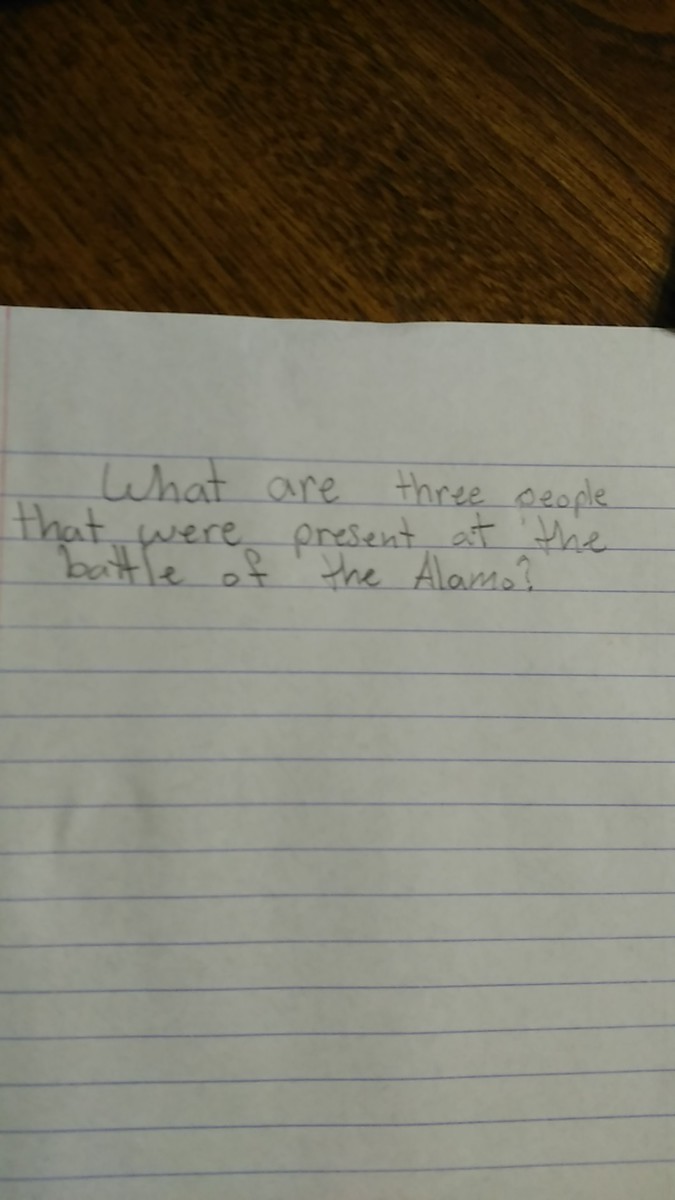 What are three people
that were present at the
battle of the Alamo?